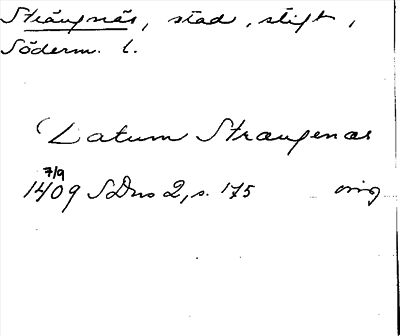 Strängnäs, stad, stift,
Söderm. l.
(Datum Strangenas
7/9
1409 SDns 2, s. 175 orig